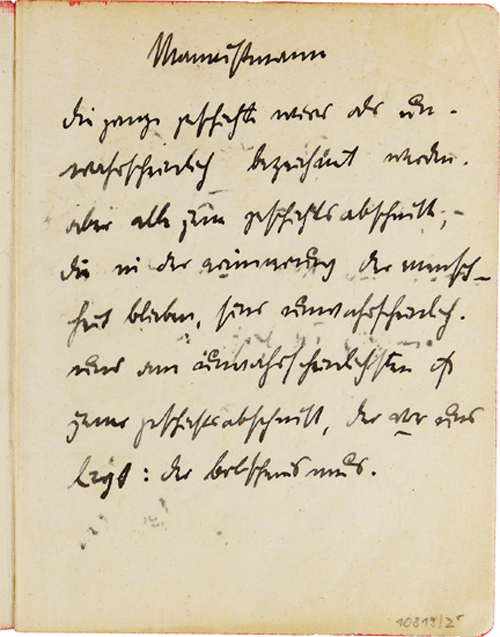 Mannistmann
die ganze geschichte wird als un-
wahrscheinlich bezeichnet werden.
aber alle jene geschichtsabschnitte,-
die in der erinnerung der mensch-
heit blieben, sind unwahrscheinlich.
und am unwahrscheinlichsten ist
jener geschichtsabschnitt, der vor uns
liegt: der bolschewismus.
10819/2r